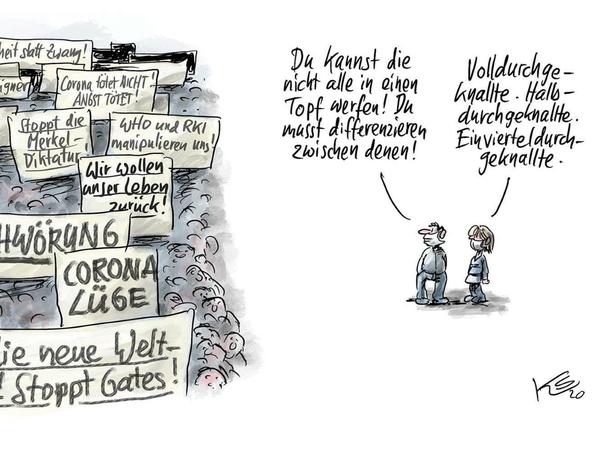 heit statt Zwang!
Corona tötet NICHT -
ANGST TÖTET!
Stoppt die
Merkel-
Diktatur!
WHO und RKI
manipulieren uns!
Wir wollen
unser Leben
zurück!
HWÖRUNG
CORONA
LÜGE
ie neue Welt-
! Stoppt Gates!
Du kannst die
nicht alle in einen
Topf werfen! Du
musst differenzieren
zwischen denen!
Volldurchge-
knallte. Halb-
durchgeknallte.
Einvierteldurch-
geknallte.
20